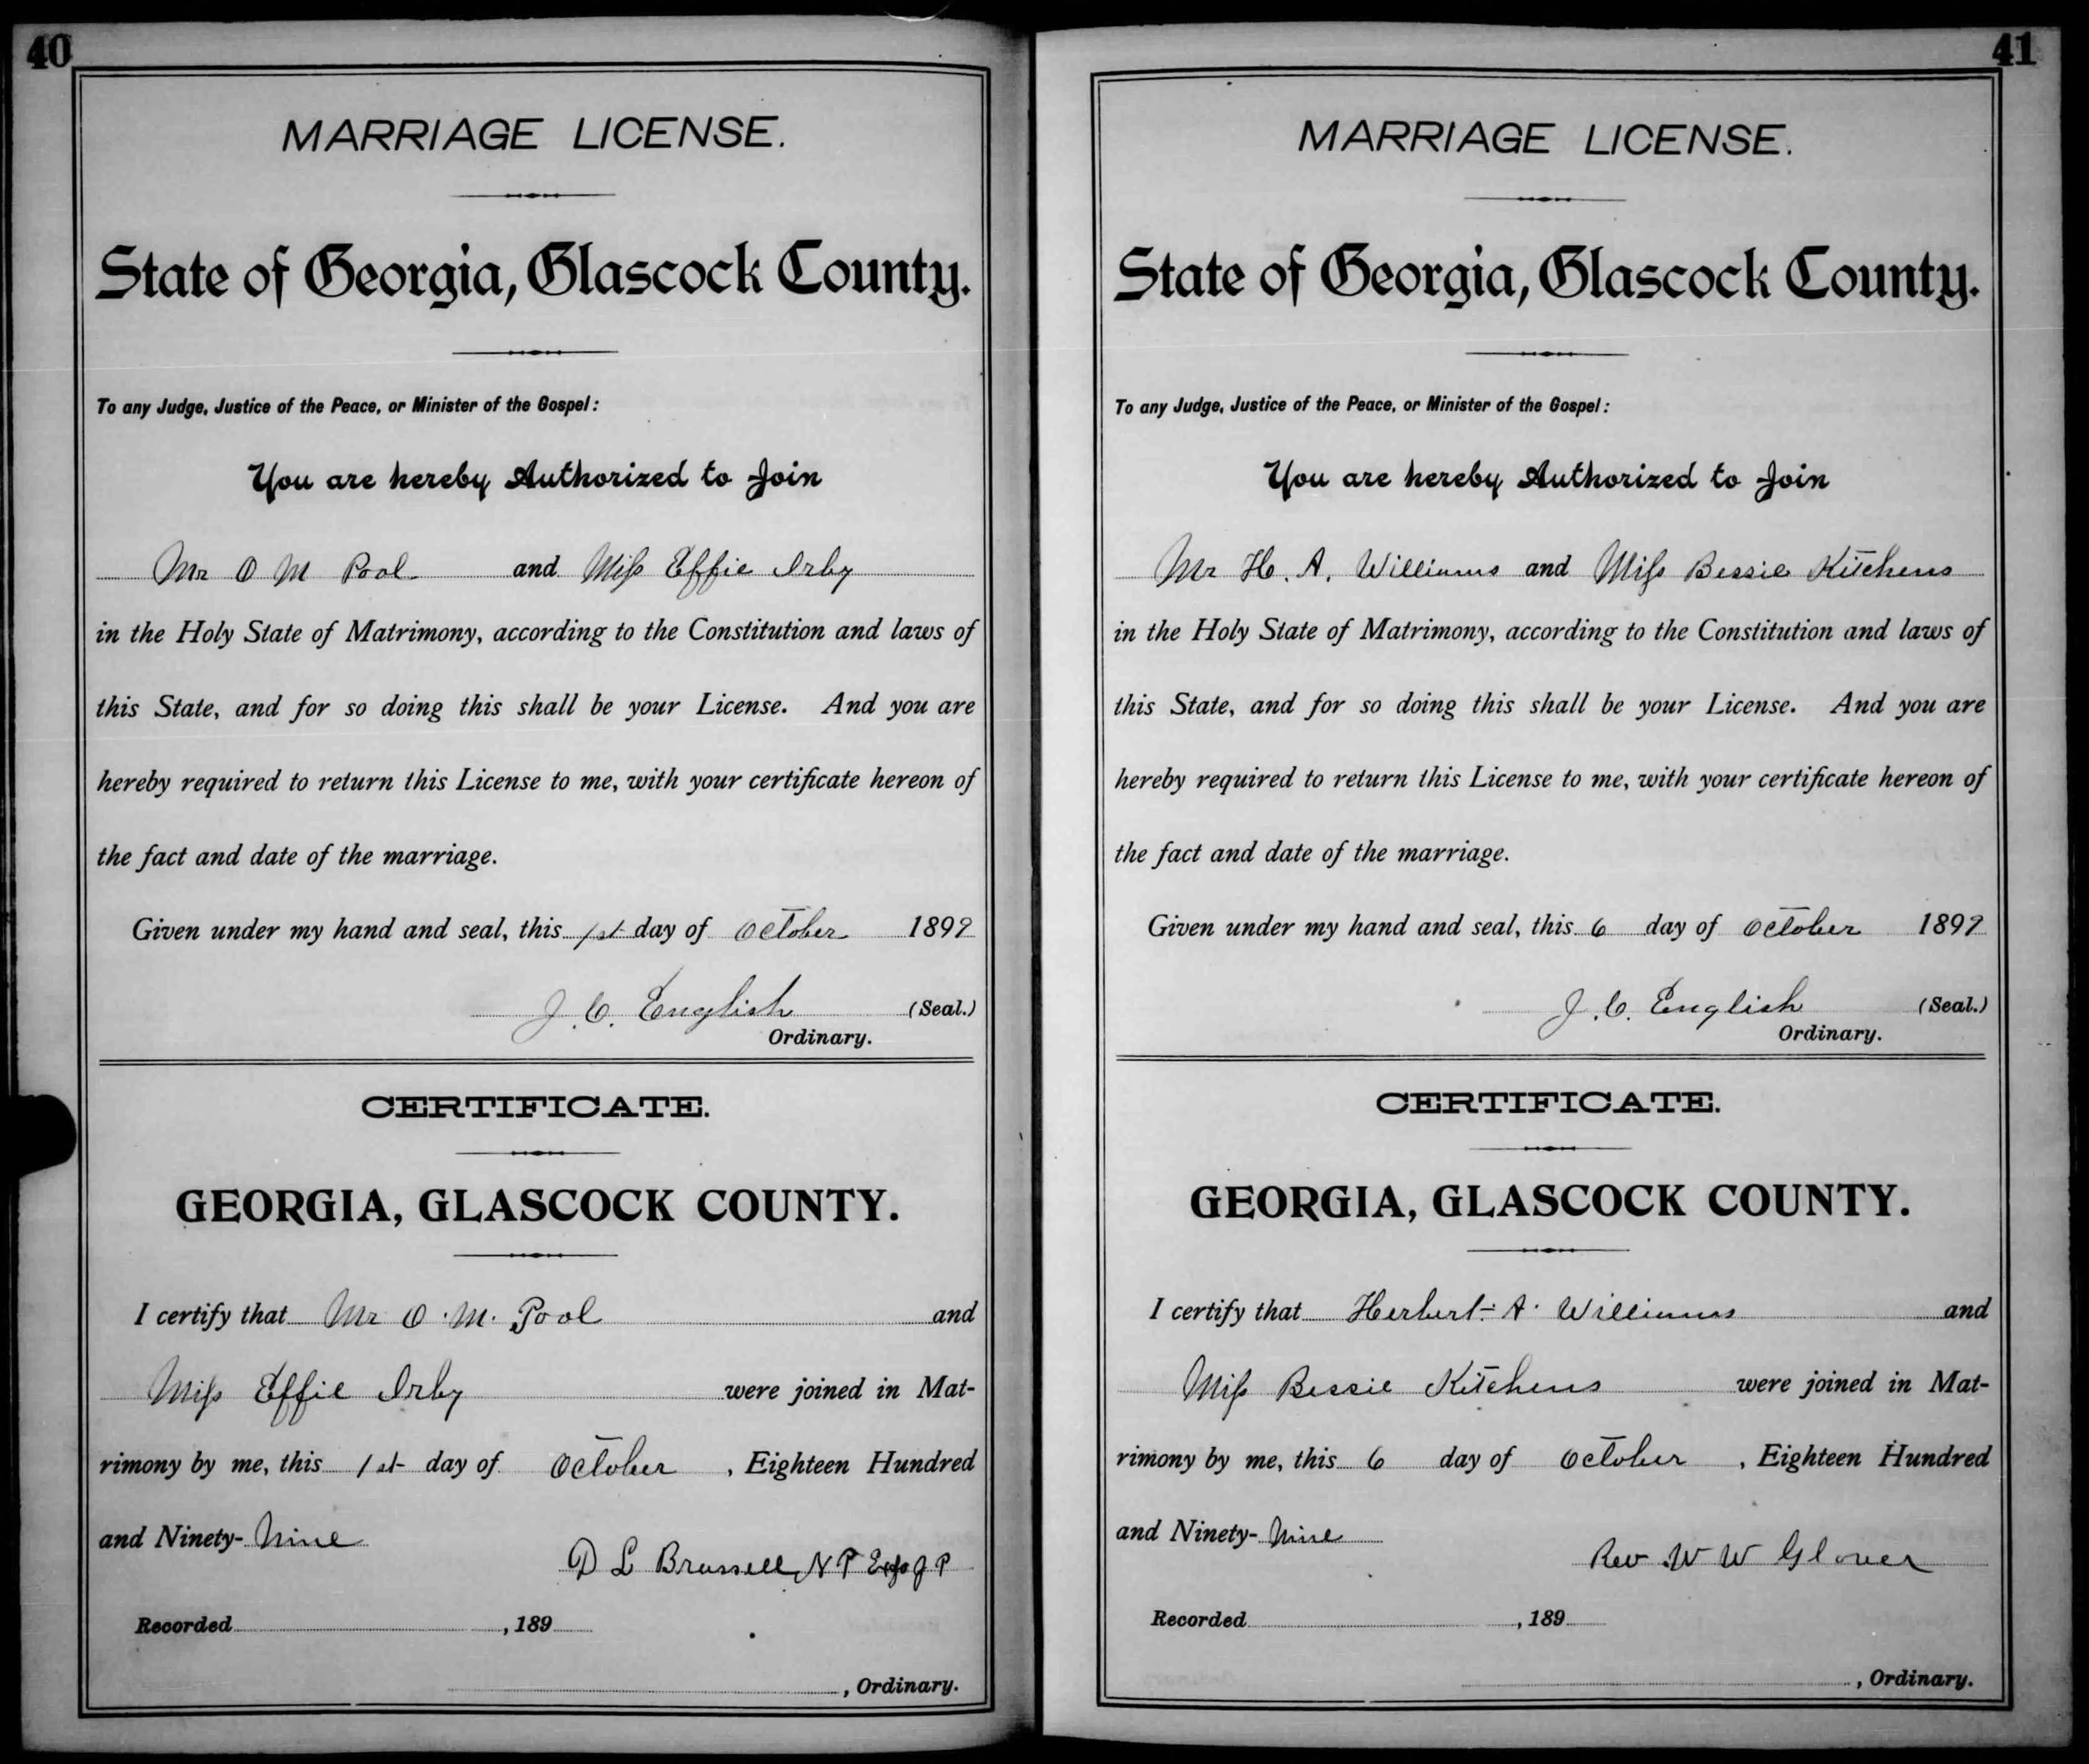 40
MARRIAGE LICENSE.
State of Georgia, Glascock County.
To any Judge, Justice of the Peace, or Minister of the Gospel:
You are hereby Authorized to Join
Mr O M Pool and Miss Effie Irby
in the Holy State of Matrimony, according to the Constitution and laws of
this State, and for so doing this shall be your License. And you are
hereby required to return this License to me, with your certificate hereon of
the fact and date of the marriage.
Given under my hand and seal, this 1st day of October 1899
J. C. English (Seal.)
Ordinary.
CERTIFICATE.
GEORGIA, GLASCOCK COUNTY.
I certify that Mr O. M. Pool and
Miss Effie Irby were joined in Mat-
rimony by me, this 1st day of October, Eighteen Hundred
and Ninety-Nine
D L Brassell N P Exfo J P
Recorded , 189
, Ordinary.
41
MARRIAGE LICENSE.
State of Georgia, Glascock County.
To any Judge, Justice of the Peace, or Minister of the Gospel:
You are hereby Authorized to Join
Mr H. A. Williams and Miss Bessie Kitchens
in the Holy State of Matrimony, according to the Constitution and laws of
this State, and for so doing this shall be your License. And you are
hereby required to return this License to me, with your certificate hereon of
the fact and date of the marriage.
Given under my hand and seal, this 6 day of October 1899
J. C. English (Seal.)
Ordinary.
CERTIFICATE.
GEORGIA, GLASCOCK COUNTY.
I certify that Herbert A. Williams and
Miss Bessie Kitchens were joined in Mat-
rimony by me, this 6 day of October, Eighteen Hundred
and Ninety-Nine
Rev W W Glover
Recorded , 189
, Ordinary.